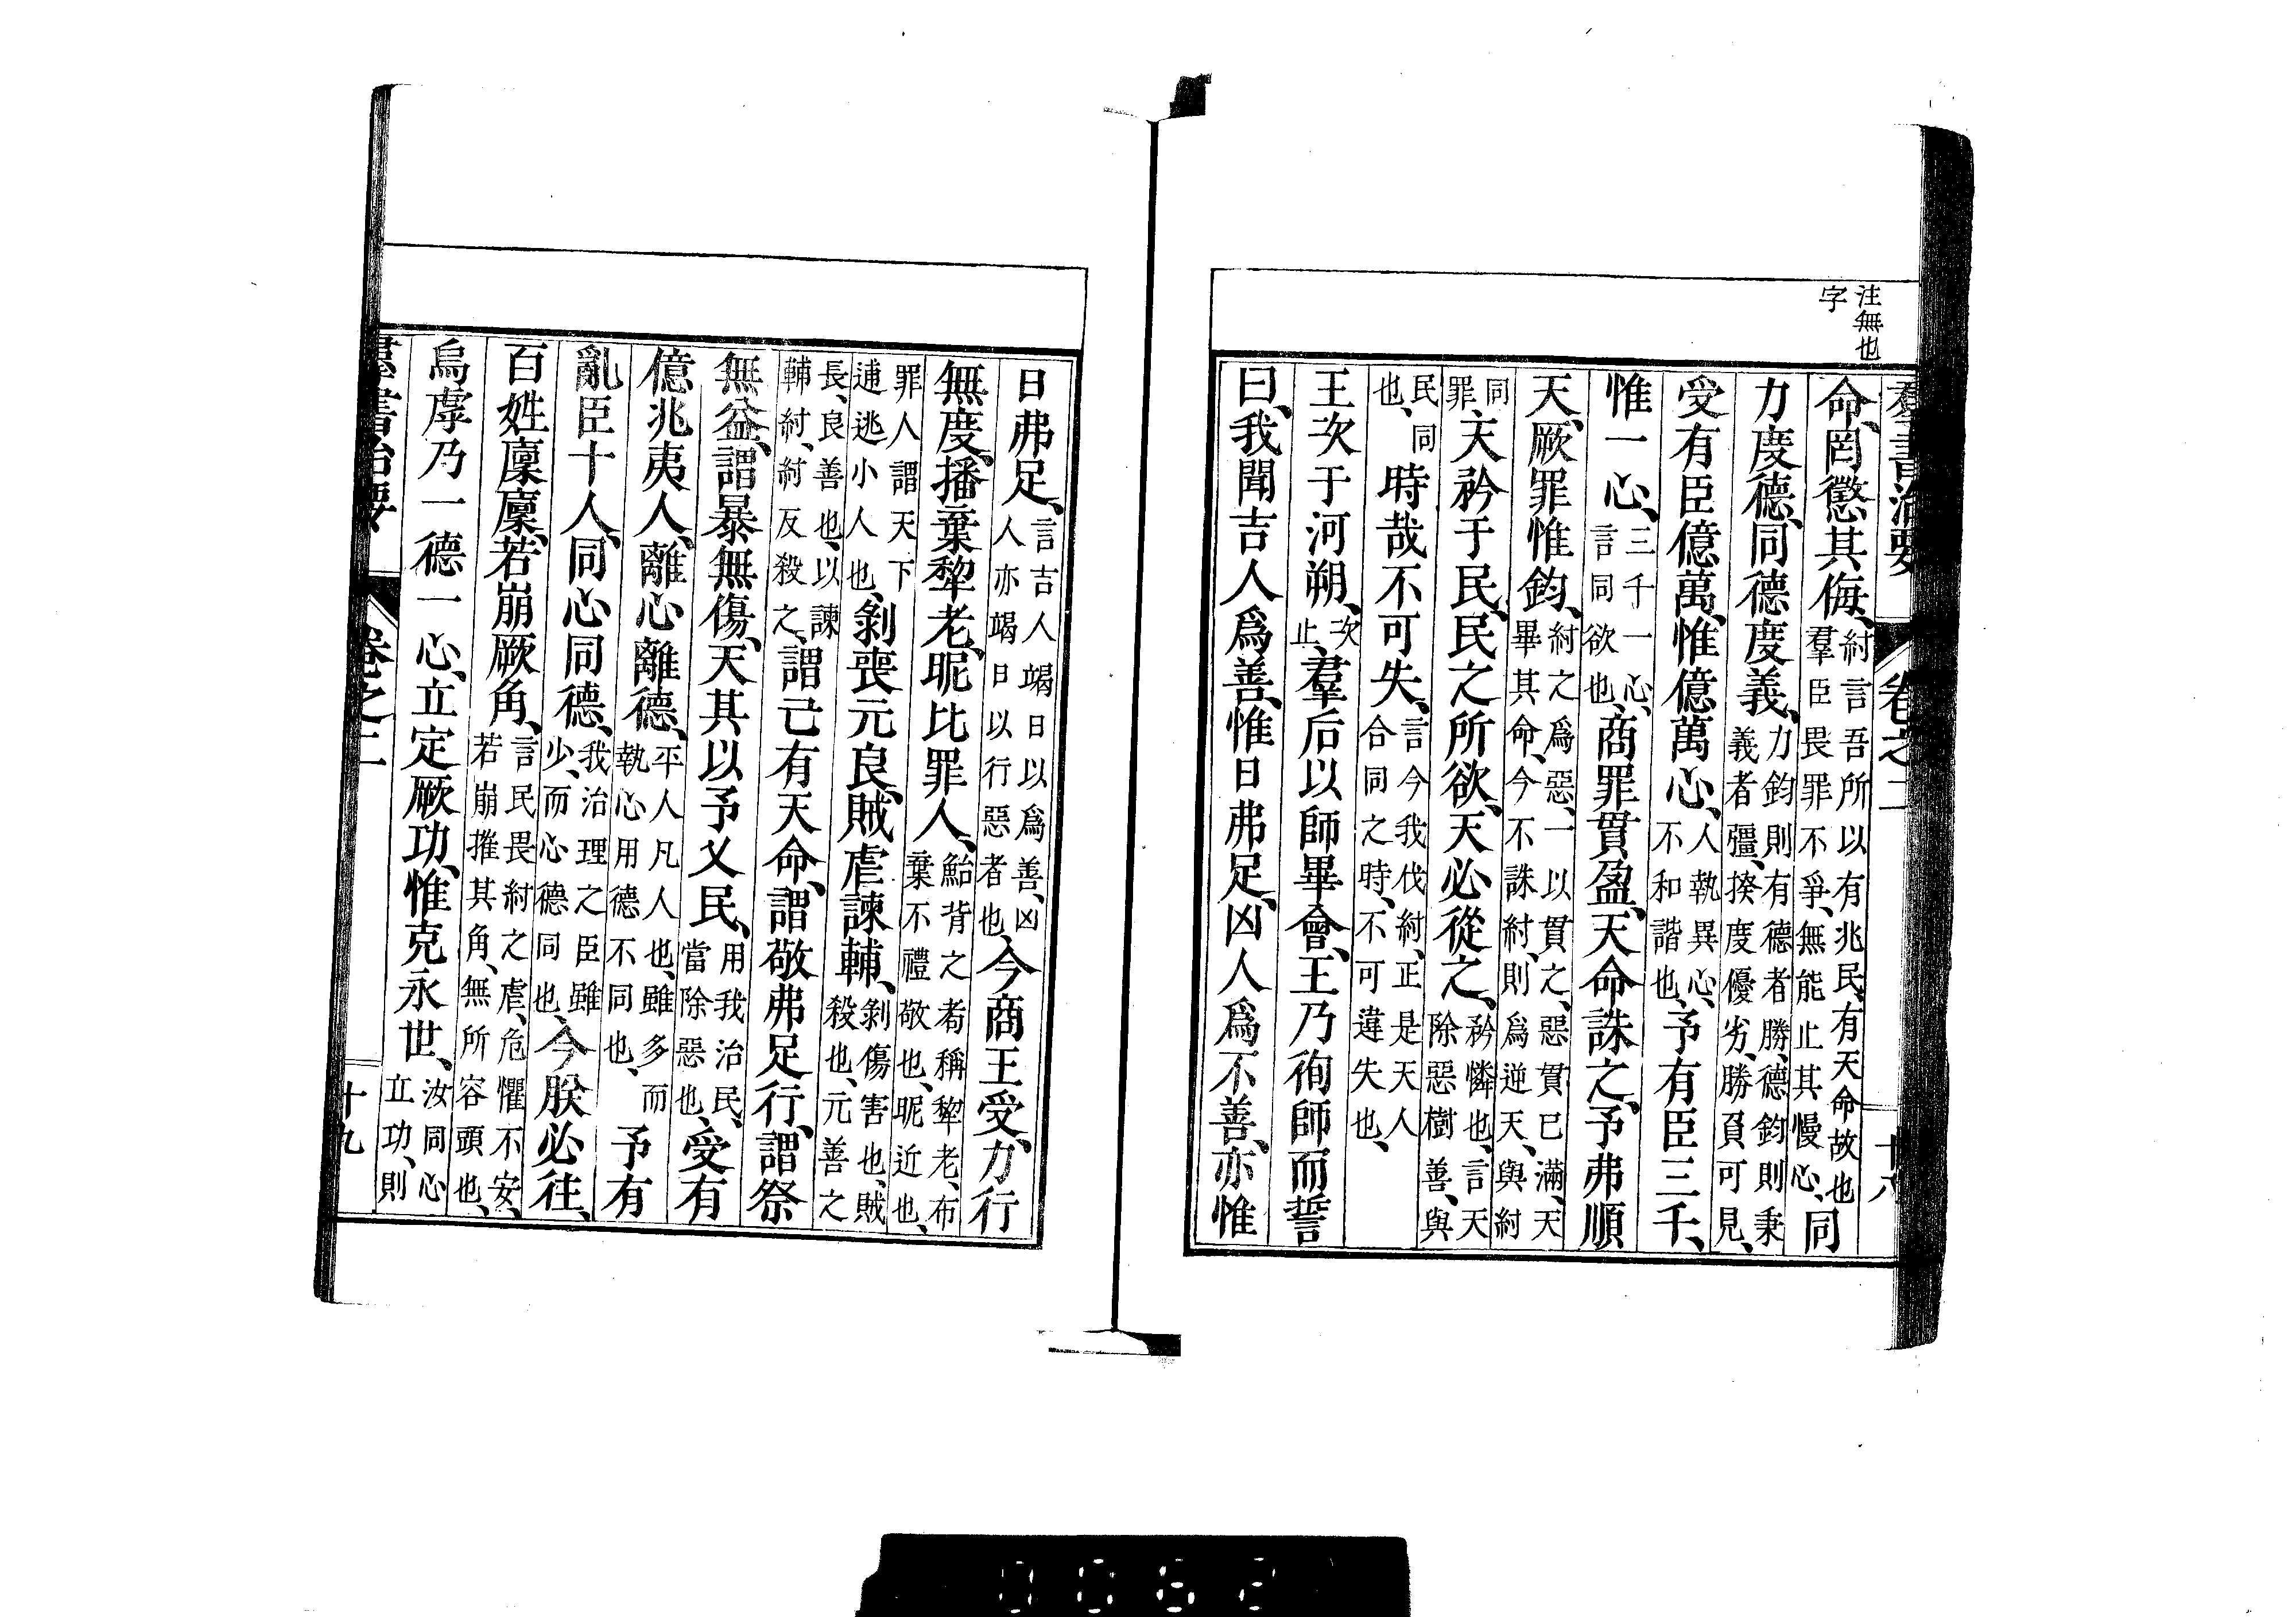 注無也
字
羣書治要 卷之二 十八
命、罔懲其侮、紂言吾所以有兆民、有天命故也羣臣畏罪不爭、無能止其慢心、同
力度德、同德度義、力鈞則有德者勝、德鈞則秉義者彊、揆度優劣、勝負可見、
受有臣億萬、惟億萬心、人執異心、不和諧也、予有臣三千、
惟一心、三千一心、言同欲也、商罪貫盈、天命誅之、予弗順
天、厥罪惟鈞、紂之爲惡、一以貫之、惡貫已滿、天畢其命、今不誅紂、則爲逆天、與紂
同罪、天矜于民、民之所欲、天必從之、矜憐也、言天除惡樹善、與
民同也、時哉不可失、言今我伐紂、正是天人合同之時、不可違失也、
王次于河朔、次止、羣后以師畢會、王乃徇師而誓
曰、我聞吉人爲善、惟日弗足、凶人爲不善、亦惟
日弗足、言吉人竭日以爲善、凶人亦竭日以行惡者也、今商王受、力行
無度、播棄犂老、昵比罪人、鮐背之耇稱犂老、布棄不禮敬也、昵近也、
罪人謂天下逋逃小人也、剝喪元良、賊虐諫輔、剝傷害也、賊殺也、元善之
長、良善也、以諫輔紂、紂反殺之、謂己有天命、謂敬弗足行、謂祭
無益、謂暴無傷、天其以予乂民、用我治民、當除惡也、受有
億兆夷人、離心離德、平人凡人也、雖多而執心用德不同也、予有
亂臣十人、同心同德、我治理之臣雖少、而心德同也、今朕必往、
百姓廩廩、若崩厥角、言民畏紂之虐、危懼不安、若崩摧其角、無所容頭也、
烏虖乃一德一心、立定厥功、惟克永世、汝同心立功、則
羣書治要 卷之二 十九
0062